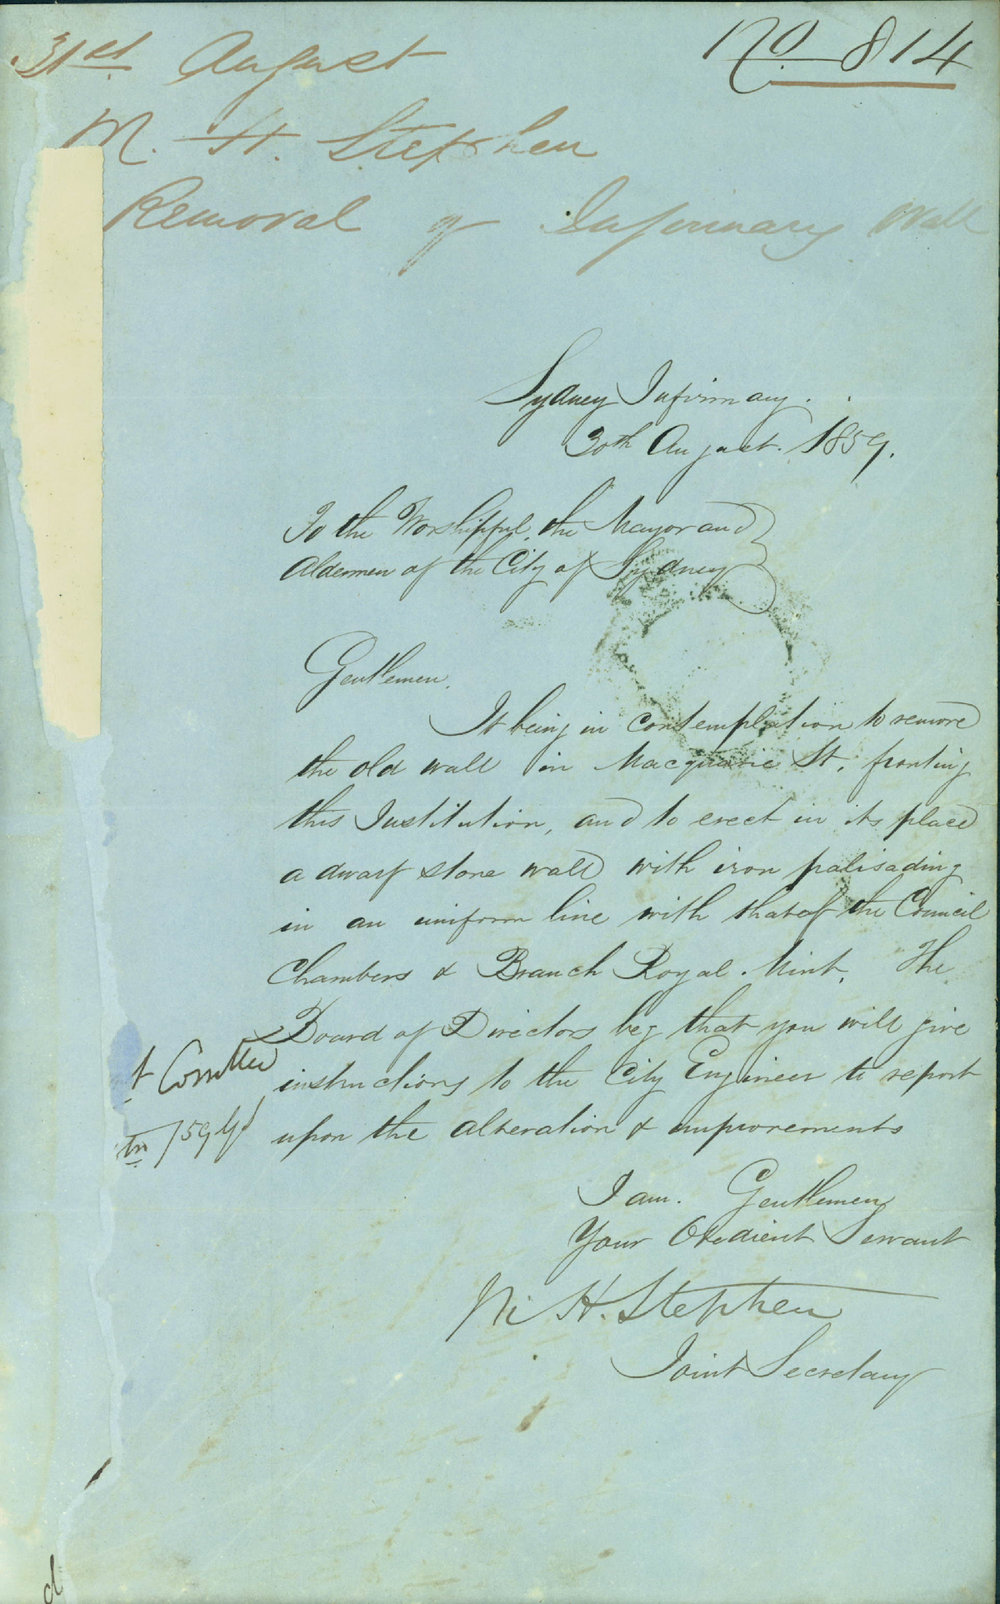 31st August
No 814
M. H. Stephen
Removal of Infirmary Wall
Sydney Infirmary.
30th August. 1859.
To the Worshipful, the Mayor and
Aldermen of the City of Sydney
Gentlemen,
It being in contemplation to remove
the old wall in Macquarie St, fronting
this Institution, and to erect in its place
a dwarf stone wall with iron palisading
in an uniform line with that of the Council
Chambers & Branch Royal Mint. The
Board of Directors beg that you will give
instructions to the City Engineer to report
upon the alteration & improvements
t Comttee
/59
I am. Gentlemen
Your Obedient Servant
M H. Stephen
Joint Secretary
d